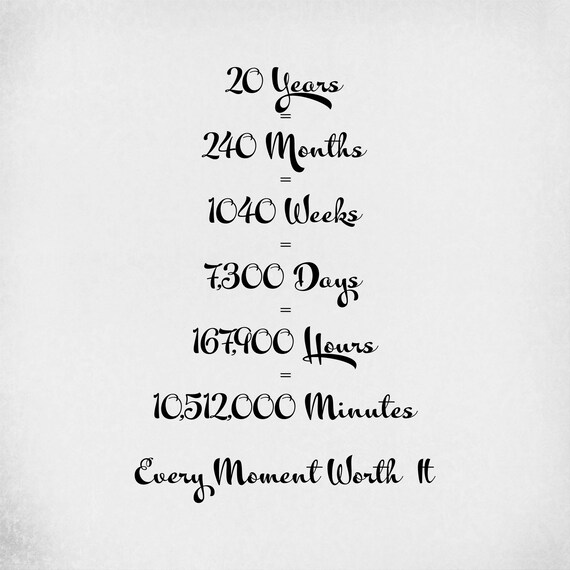 20 Years
=
240 Months
=
1040 Weeks
=
7,300 Days
=
167,900 Hours
=
10,512,000 Minutes
Every Moment Worth It